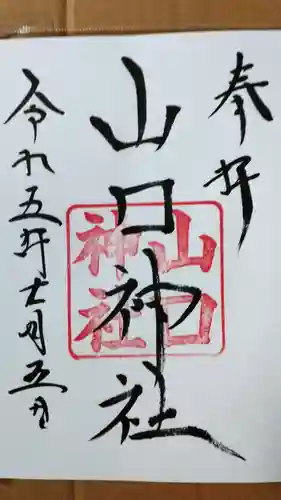 奉拝
山口神社
山口
神社
令和五年十一月五日